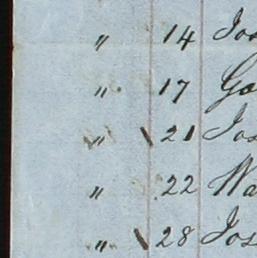 " 14 Jos
" 17 Ga
" \ 21 Jos
" 22 Wa
" \ 28 Jos